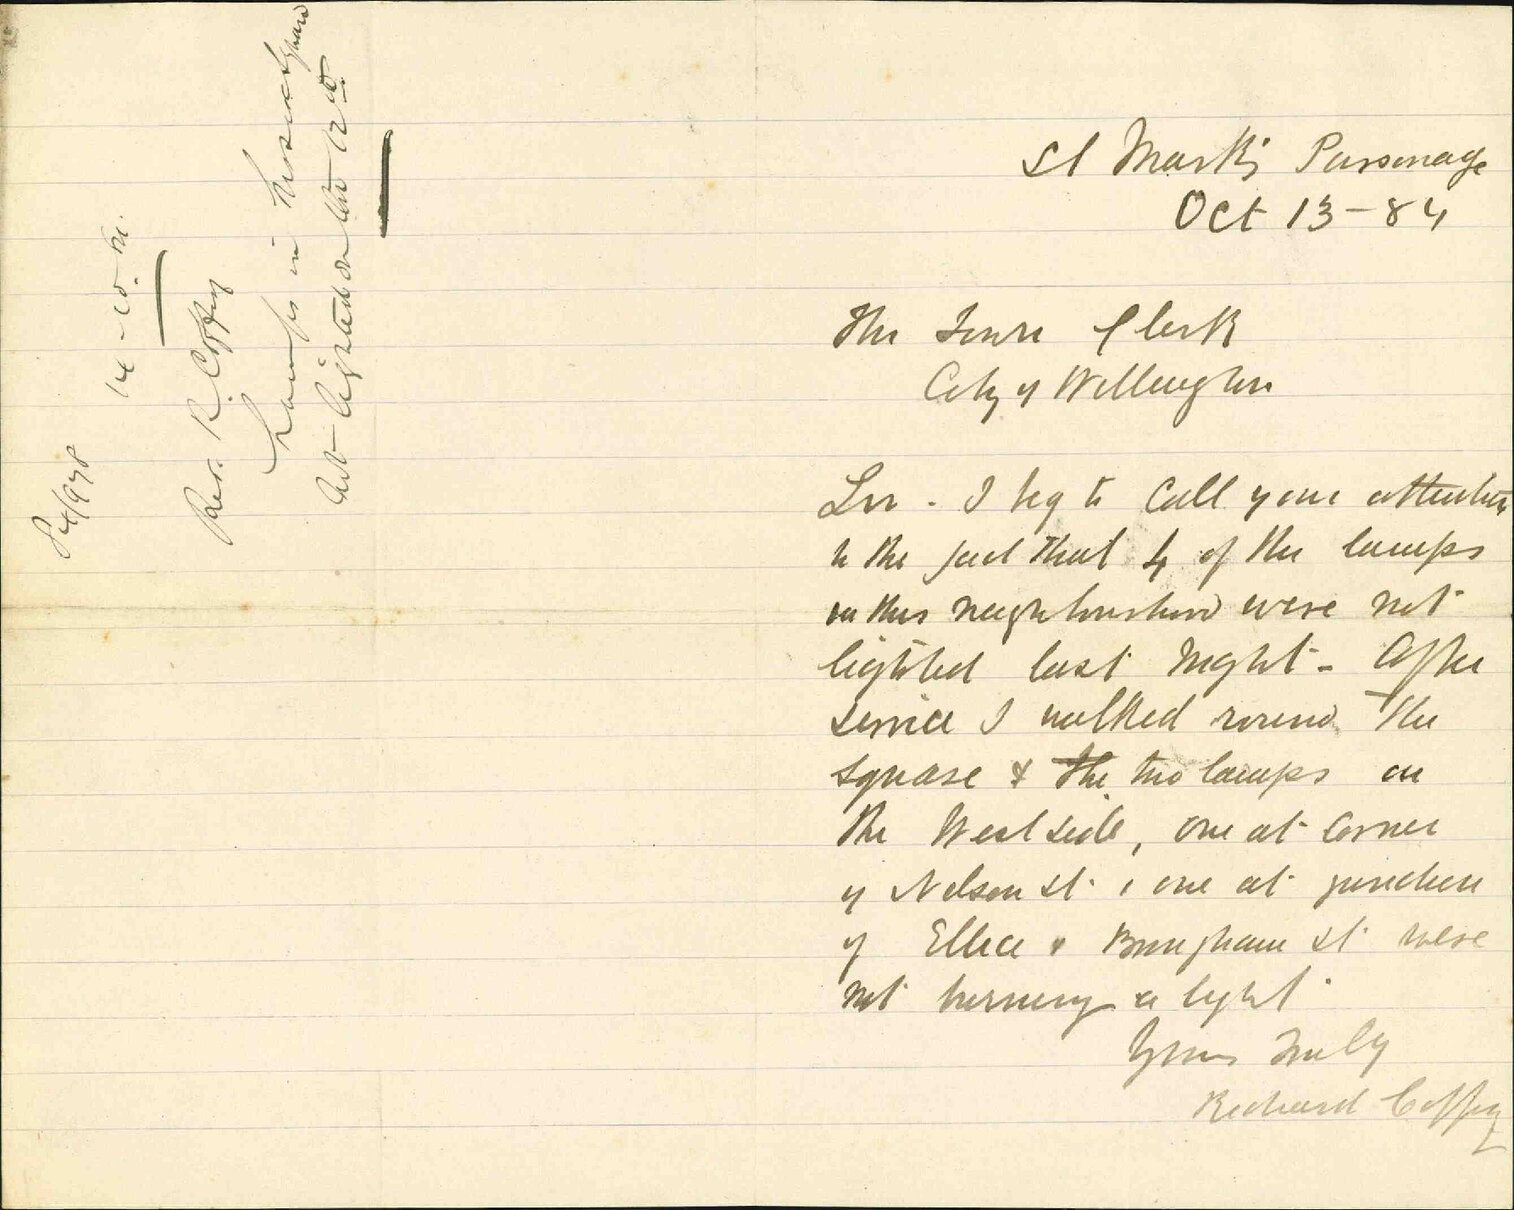 84/978
14-10-84
Rev. R. Coffey
Lamps in Square
not lighted on the 12th
St Mark's Parsonage
Oct 13-84
The Town Clerk
City of Wellington
Sir - I beg to call your attention
to the fact that 4 of the lamps
in this neighbourhood were not
lighted last night - After
service I walked round the
square & the two lamps on
the West side, one at corner
of Nelson St. & one at junction
of Ellice & Brougham St were
not burning a light.
Yours truly
Richard Coffey